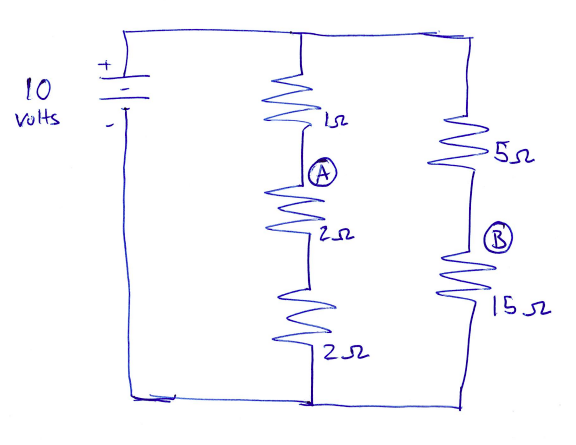 +
10
volts
-
1Ω
A
2Ω
2Ω
5Ω
B
15Ω